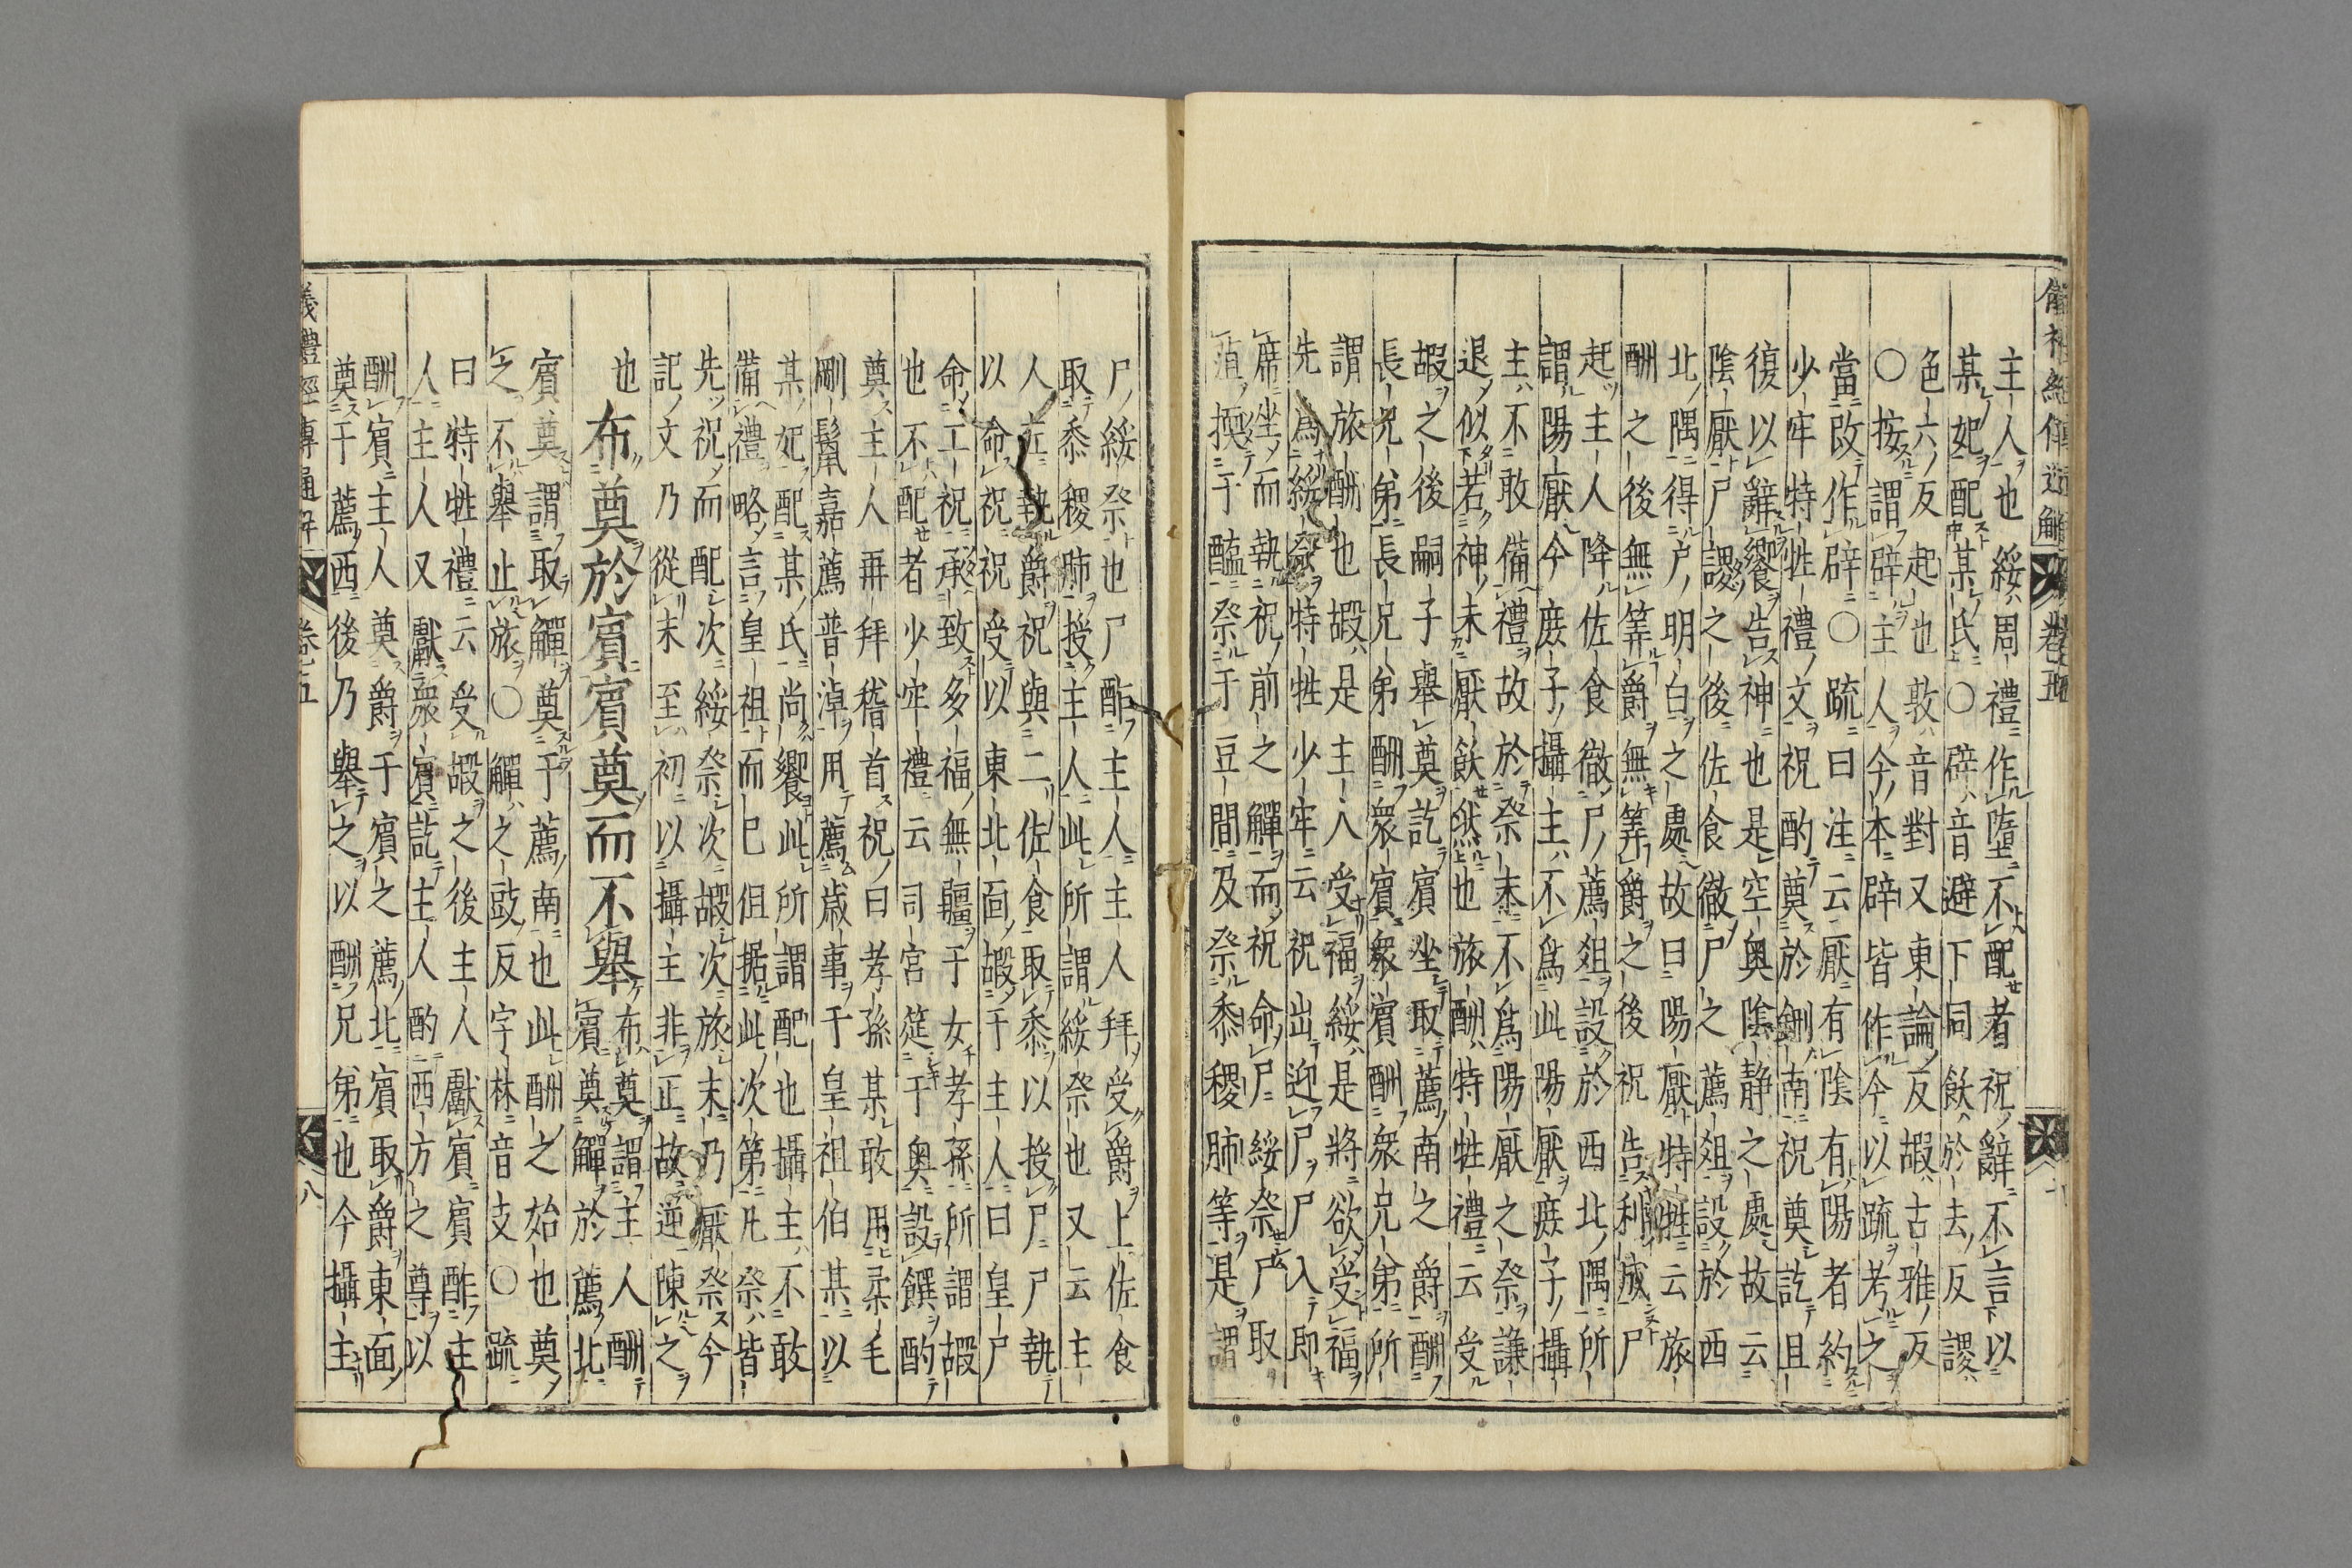 儀禮經傳通解 卷五
主人也綏周禮作墮不配者祝辭不言以
某妃配某氏○辟音避下同飫於去反謖
色六反起也敦音對又東論反嘏古雅反
○按謂辟主人今本辟皆作今以疏考之
當改作辟○疏曰注云厭有陰有陽者約
少牢特牲禮文祝酌奠於鉶南祝奠訖且
復以辭饗告神也是空奥陰静之處故云
陰厭尸謖之後佐食徹尸之薦爼設於西
北隅得户明白之處故曰陽厭特牲云旅
酬之後無筭爵無筭爵之後祝告利成尸
起主人降佐食徹尸薦爼設於西北隅所
謂陽厭今庶子攝主不爲此陽厭庶子攝
主不敢備禮故於祭末不爲陽厭之祭謙
退似若神未厭飫然也旅酬特牲禮云受
嘏之後嗣子舉奠訖賓坐取薦南之爵酬
長兄弟長兄弟酬衆賓衆賓酬衆兄弟所
謂旅酬也嘏是主人受福綏是將欲受福
先爲綏祭特牲少牢云祝出迎尸尸入即
席坐而執祝前之觶而祝命尸綏祭尸取
菹㨎于醢祭于豆間及祭黍稷肺等是謂
尸綏祭也尸酢主人主人拜受爵上佐食
取黍稷肺授主人此所謂綏祭也又云主
人左執爵祝與二佐食取黍以授尸尸執
以命祝祝受以東北面嘏于主人曰皇尸
命工祝承致多福無疆于女孝孫所謂嘏
也不配者少牢禮云司宮筵于奥設饌酌
奠主人再拜稽首祝曰孝孫某敢用柔毛
剛鬛嘉薦普淖用薦歳事于皇祖伯某以
某妃配某氏尚饗此所謂配也攝主不敢
備禮略言皇祖而巳但据此次第凡祭皆
先祝而配次綏祭次嘏次旅末乃厭祭今
記文乃從末至初以攝主非正故逆陳之
也
布奠於賓賓奠而不舉
布奠謂主人酬
賓奠觶於薦北
賓奠謂取觶奠于薦南也此酬之始也奠
之不舉止旅○觶之豉反字林音支○疏
曰特牲禮云受嘏之後主人獻賓賓酢主
人主人又獻衆賓訖主人酌西方之尊以
酬賓主人奠爵于賓之薦北賓取爵東面
奠于薦西後乃舉之以酬兄弟也今攝主
儀禮經傳通解 卷五 八